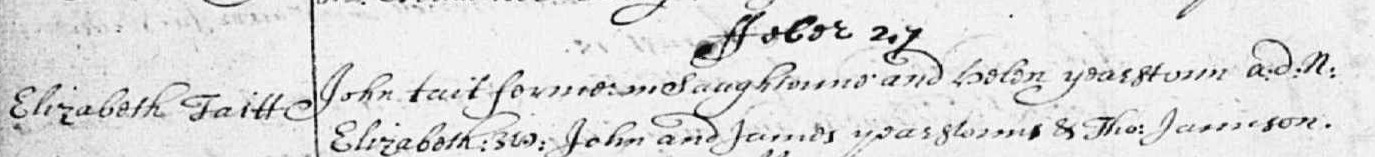 ffeber 27
Elizabeth Taitt
John tait fermer in Saughtoune and Helen yearstoun a:d:N:
Elizabeth: W: John and James yearstouns & Tho: Jamieson.